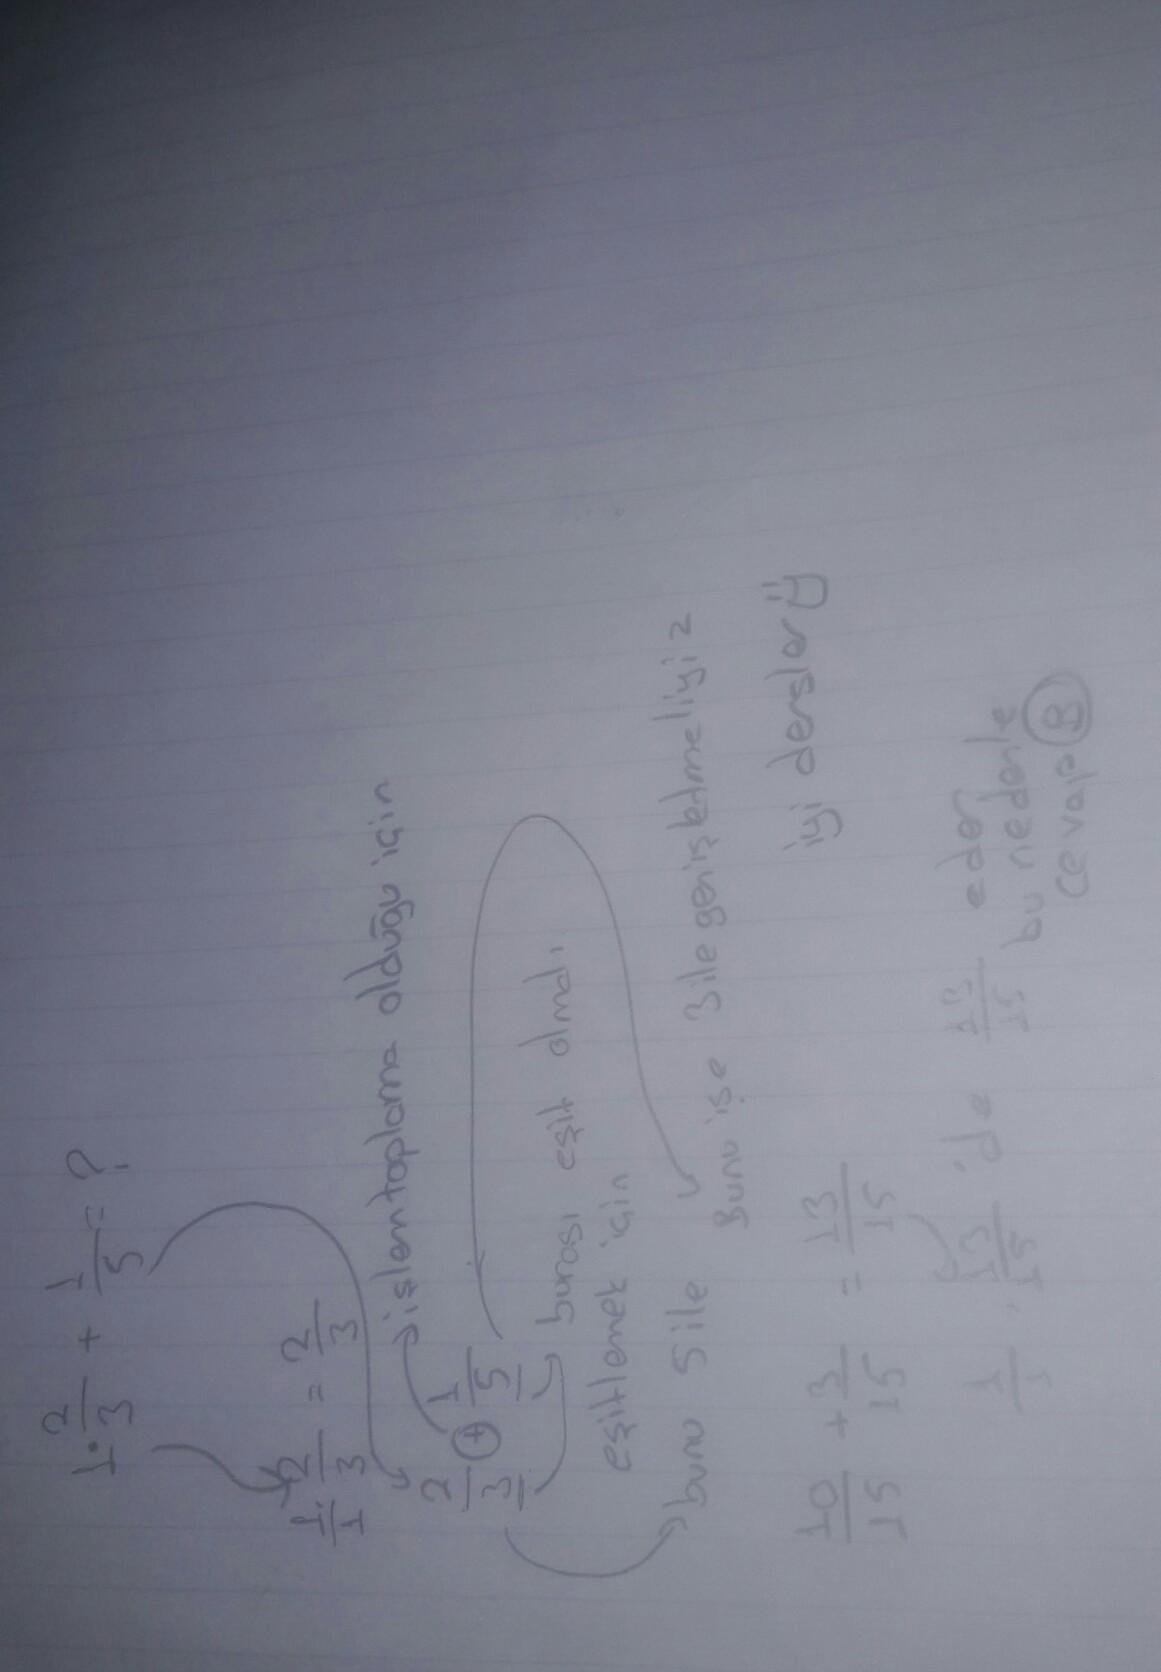 1 · 2/3 + 1/5 = ?
1/1 · 2/3 = 2/3
işlem toplama olduğu için
2/3 + 1/5
burası eşit olmalı
eşitlemek için
bunu 5 ile
Bunu işe 3 ile genişletmeliyiz
10/15 + 3/15 = 13/15
iyi dersler
1/1 · 13/15 'de 13/15 eder
bu nedenle
cevap B